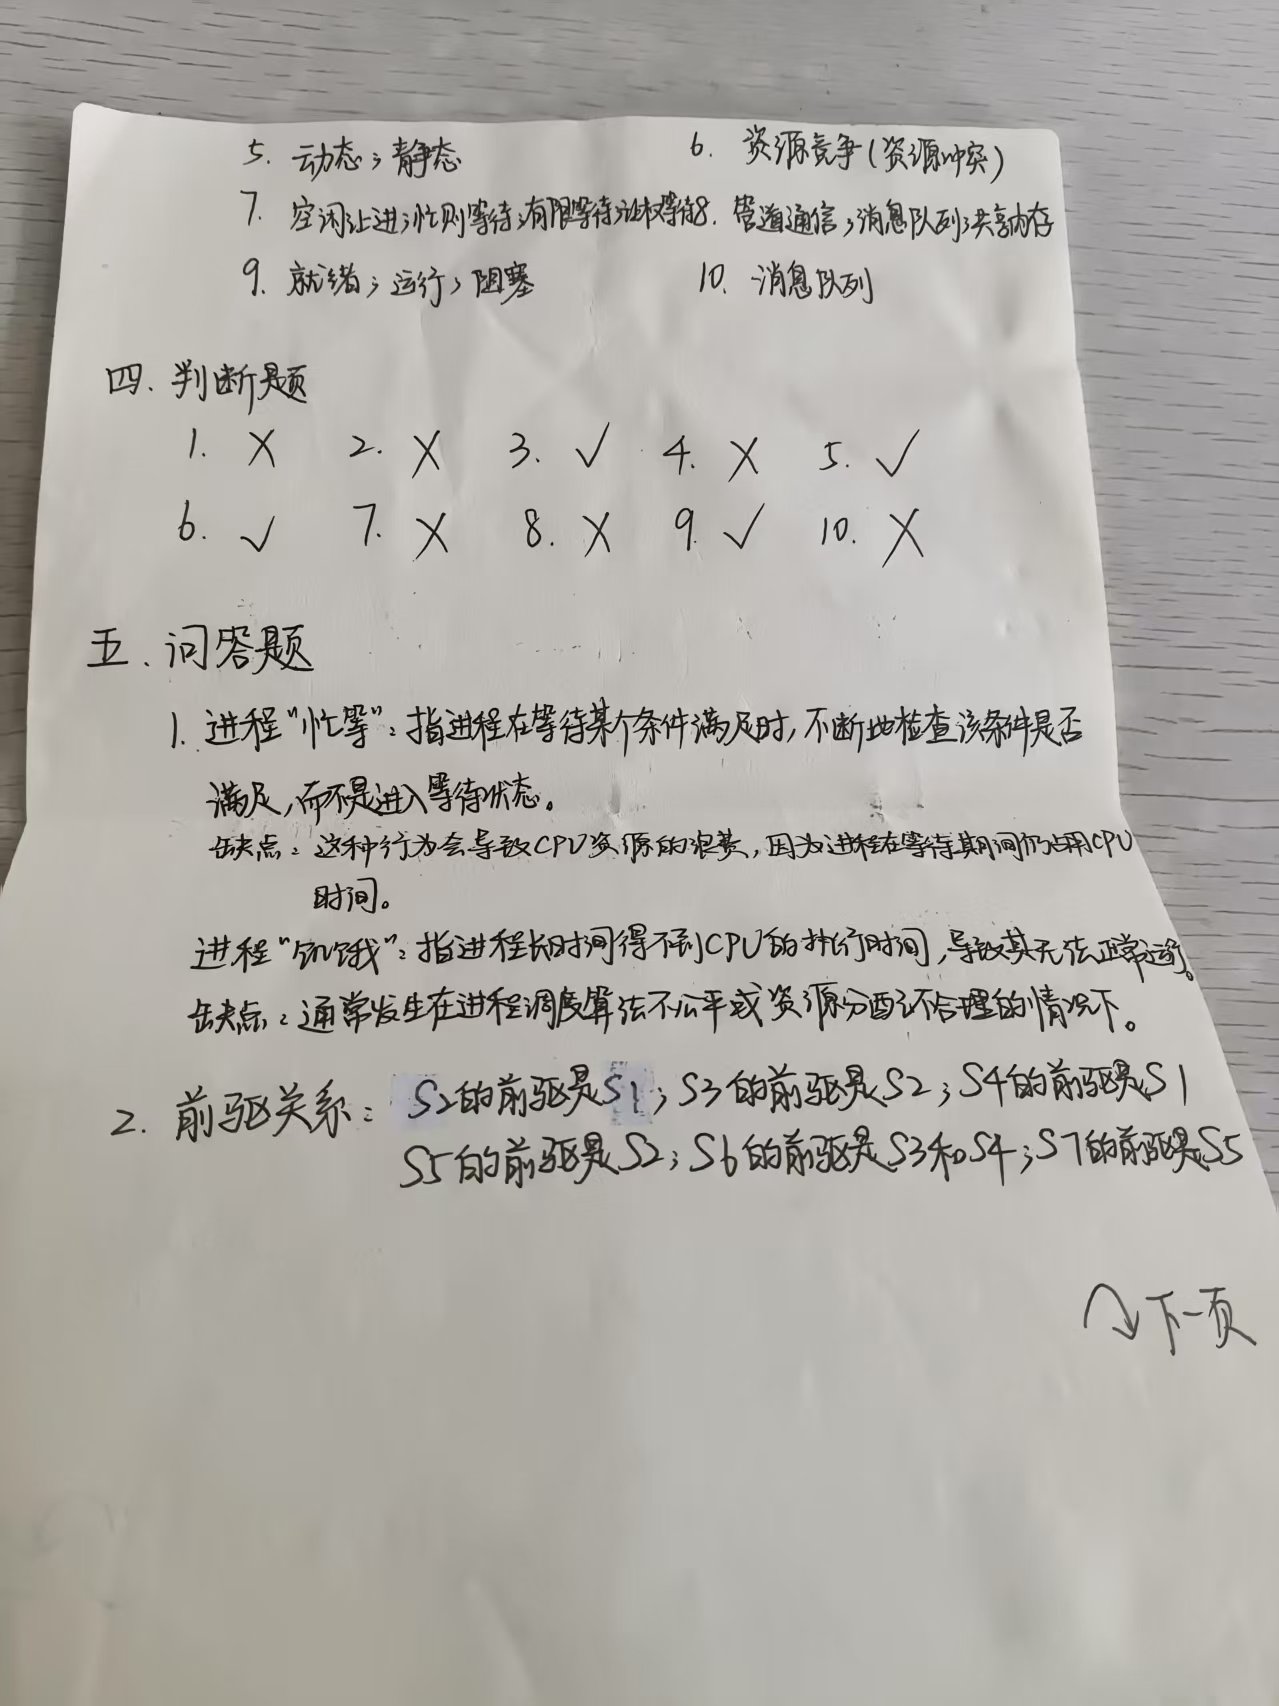 5. 动态；静态 6. 资源竞争(资源冲突)
7. 空闲让进；忙则等待；有限等待；让权等待 8. 管道通信；消息队列；共享内存
9. 就绪；运行；阻塞 10. 消息队列
四. 判断题
1. X 2. X 3. ✓ 4. X 5. ✓
6. ✓ 7. X 8. X 9. ✓ 10. X
五. 问答题
1. 进程“忙等”：指进程在等待某个条件满足时，不断地检查该条件是否
满足，而不是进入等待状态。
缺点：这种行为会导致CPU资源的浪费，因为进程在等待期间仍占用CPU
时间。
进程“饥饿”：指进程长时间得不到CPU的执行时间，导致其无法正常运行。
缺点：通常发生在进程调度算法不公平或资源分配不合理的情况下。
2. 前驱关系：S2的前驱是S1；S3的前驱是S2；S4的前驱是S1
S5的前驱是S2；S6的前驱是S3和S4；S7的前驱是S5
下一页